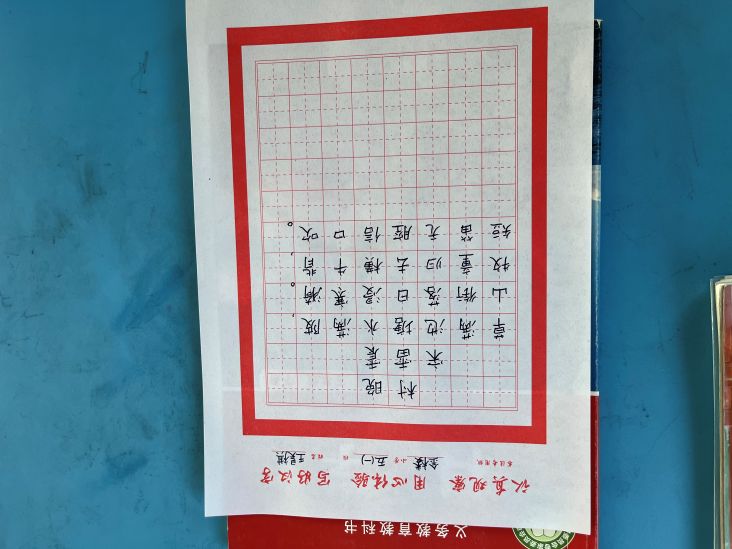 认真观察 用心体验 写好汉字
金楼 小学 五(一) 班 姓名
村晚
宋雷震
草满池塘水满陂，
山衔落日浸寒漪。
牧童归去横牛背，
短笛无腔信口吹。
义务教育教科书